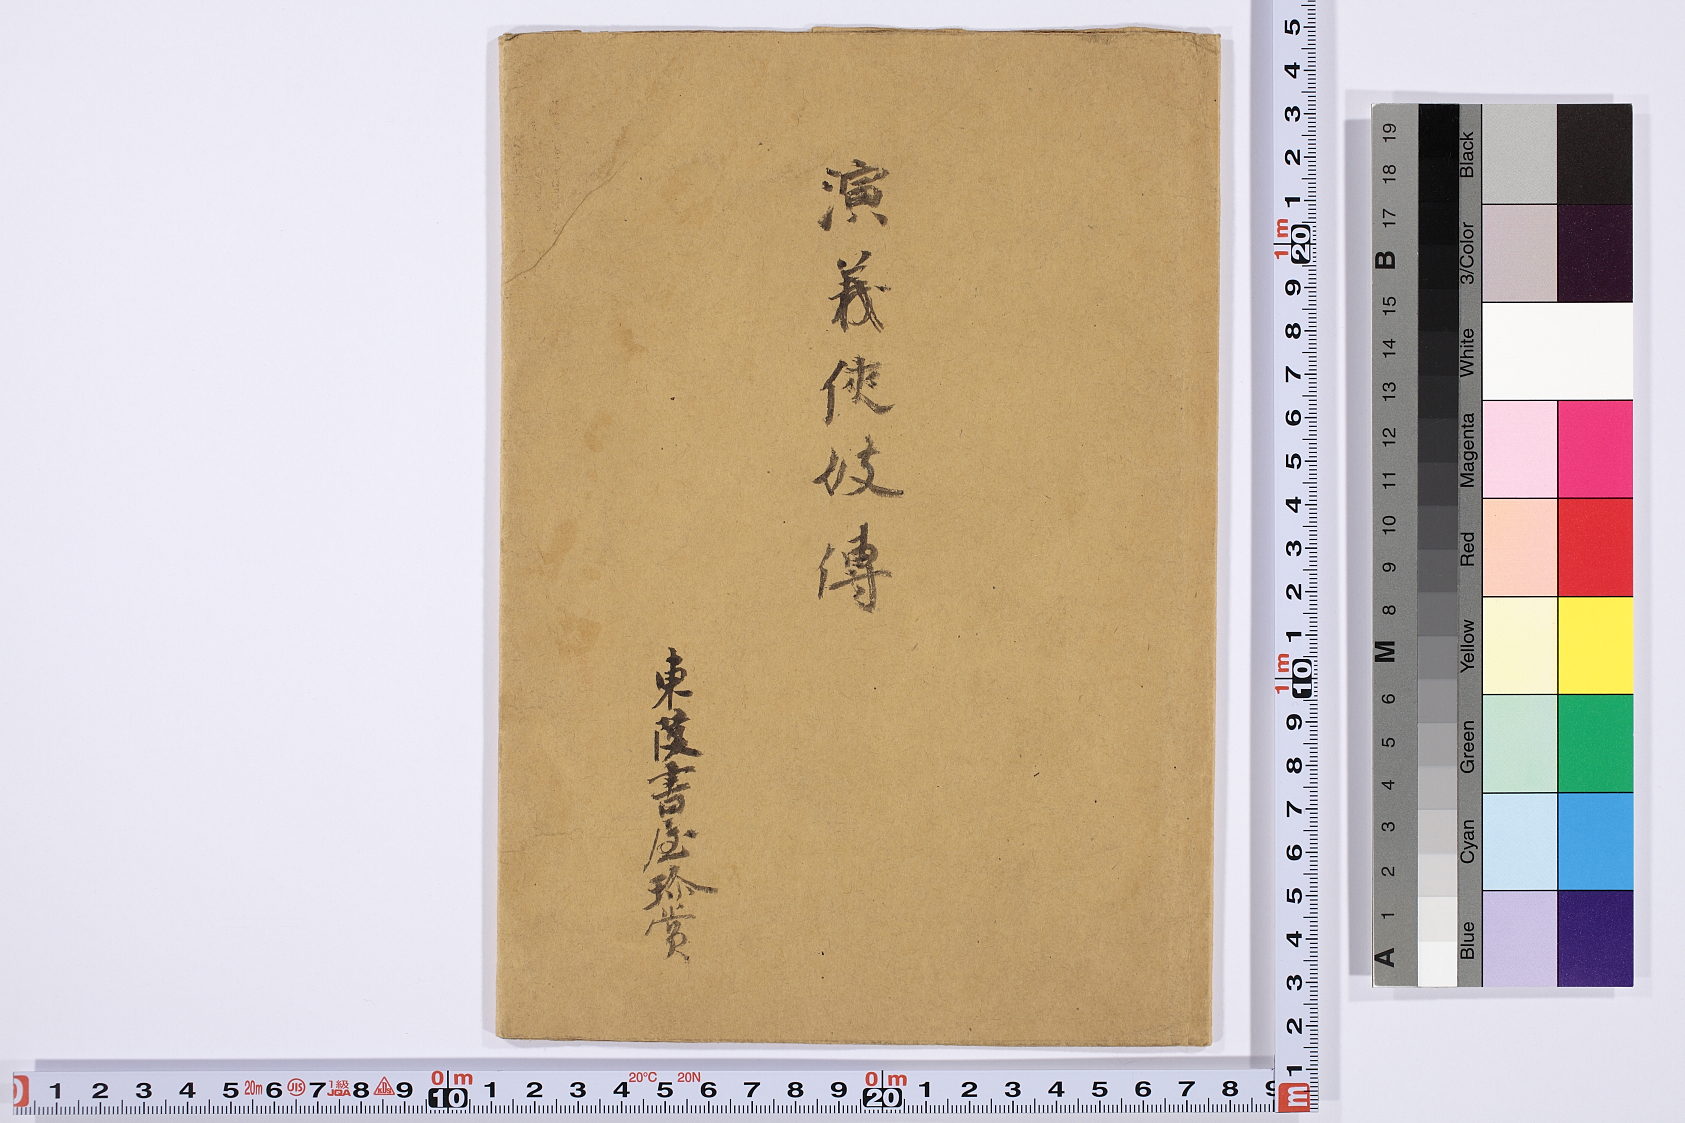 演義俠妓傳
東陵書屋珍賞
5 4 3 2 1 1m 20 9 8 7 6 5 4 3 2 1 1m 10 9 8 7 6 5 4 3 2 1 m
0 1 2 3 4 5 20m JIS 6 7 1級 JQA 8 9 0m 10 1 2 3 4 20°C 5 20N 6 7 8 9 0m 20 1 2 3 4 5 6 7 8 9
19 18 17 B 15 14 13 12 11 10 9 8 M 6 5 4 3 2 1 A
Black
3/Color
White
Magenta
Red
Yellow
Green
Cyan
Blue